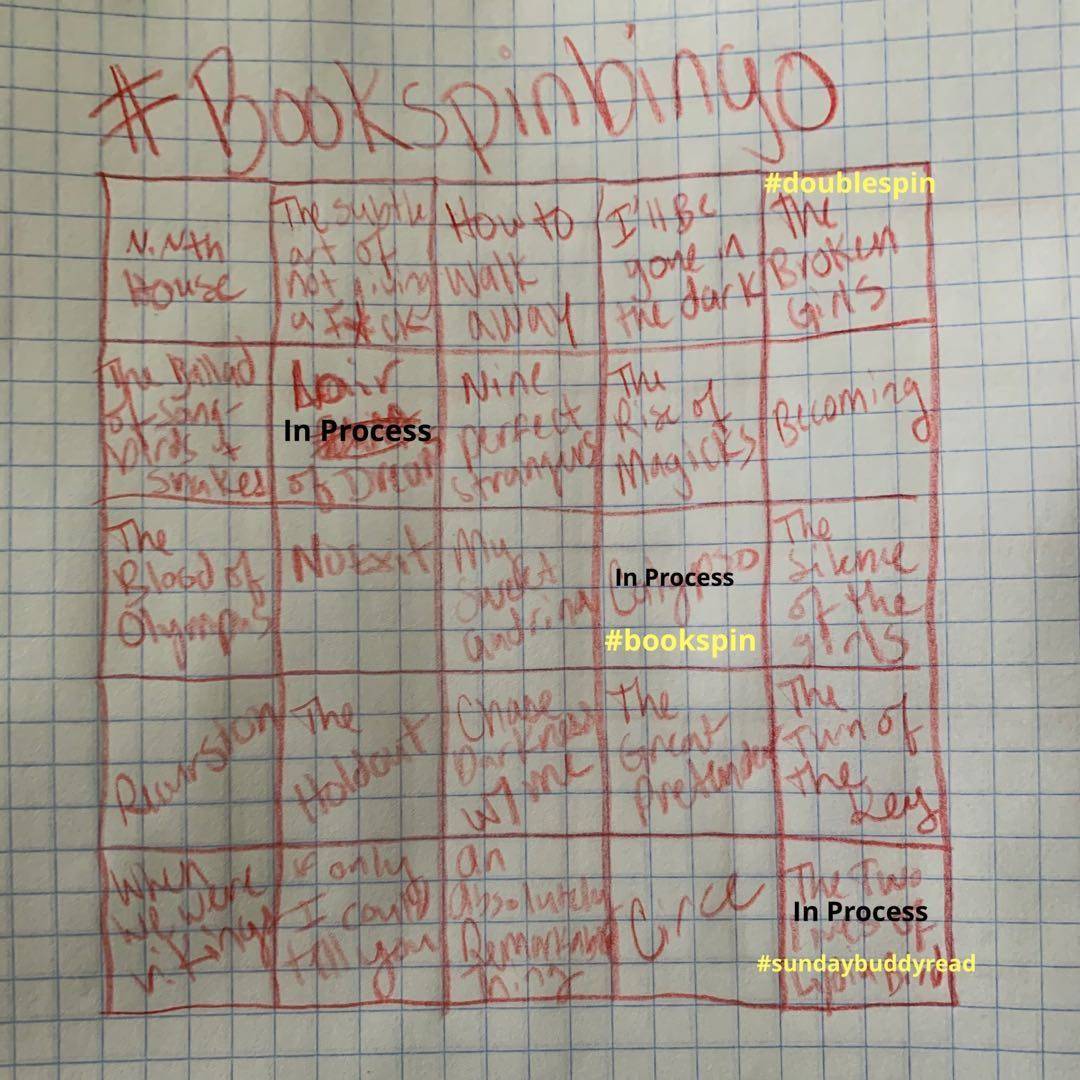 #Bookspinbingo
#doublespin
Ninth
House
The subtle
art of
not giving
a F*ck
How to
walk
away
I'll Be
gone in
the dark
The
Broken
Girls
The Ballad
of song-
birds &
snakes
Lair
In Process
of Dream
Nine
perfect
strangers
The
Rise of
Magicks
Becoming
The
Blood of
Olympus
No Exit
My
Sweet
In Process
#bookspin
The
Silence
of the
girls
Recursion
The
Holdout
Chase
Darkness
w/ me
The
Great
Pretender
The
Turn of
the
Key
When
we were
vikings
if only
I could
tell you
An
Absolutely
Remarkable
Thing
Circe
The Two
In Process
Lives of
#sundaybuddyread